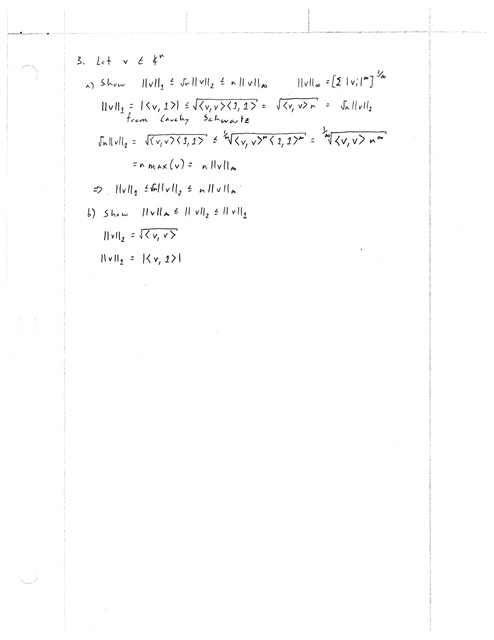 3. Let v ∈ ℝⁿ
a) Show ||v||₁ ≤ √n||v||₂ ≤ n||v||∞ ||v||∞ = [Σ|vᵢ|^∞]^1/∞
||v||₁ = |<v,1>| ≤ √<v,v><1,1> = √<v,v>n = √n||v||₂
from Cauchy Schwartz
√n||v||₂ = √<v,v><1,1> ≤ ^1/∞√<v,v>^∞<1,1>^∞ = ^1/∞√<v,v> n^∞
= n max(v) = n||v||∞
⇒ ||v||₁ ≤ √n||v||₂ ≤ n||v||∞
b) Show ||v||∞ ≤ ||v||₂ ≤ ||v||₁
||v||₂ = √<v,v>
||v||₁ = |<v,1>|